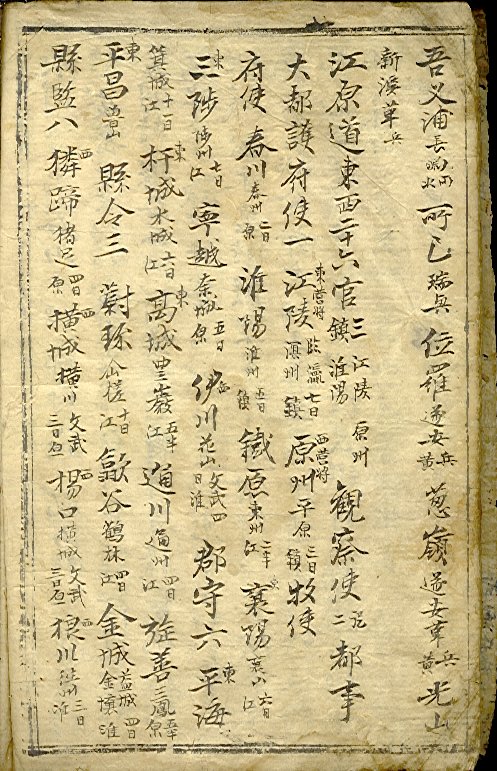 吾乂浦長鳴火 所已瑞兵 位羅遂安兵黃 葱嶺遂安兵黃 光山
新溪草兵
江原道東西二十六官 三鎮江陵原州淮陽 觀察使二 都事
大都護府使一 江陵東營將臨瀛溟州七日鎮 原州西營將平原三日鎮 牧使
府使 春川春州二日原 淮陽淮州五日鎮 鐵原東州二日半江 襄陽襄山六日江
三陟東陟州七日江 寧越奈城五日原 伊川西花山文武四日淮 郡守六 平海東
箕城十一日江 杆城東水城六日江 高城東豊巖五日半江 通川通州四日江 旌善三鳳五日半原
平昌東 縣令三 蔚珍仙槎十日江 歙谷鶴林四日江 金城益城金壤四日淮
縣監八 獜蹄西猪足四日原 橫城西橫川文武三日原 楊口西橫城文武三日 狼川西三日淮